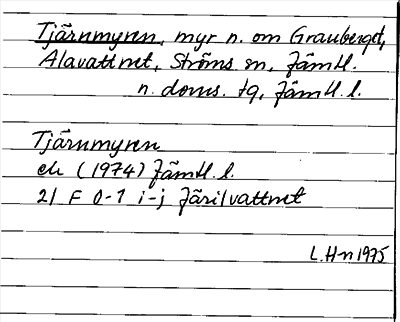 Tjärnmyren, myr n. om Grauberget,
Alavattnet, Ströms sn, Jämtl.
n. doms. tg, Jämtl. l.
Tjärnmyren
ek (1974) Jämtl. l.
21 F 0-1 i-j Järilvattnet
L.Hn 1975